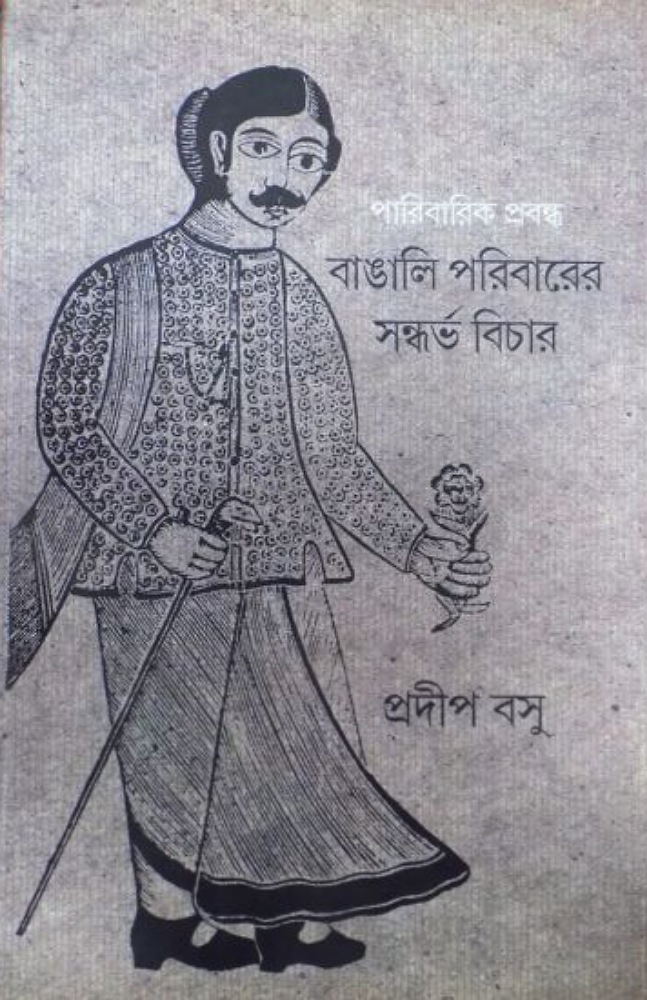 পারিবারিক প্রবন্ধ
বাঙালি পরিবারের
সন্ধর্ভ বিচার
প্রদীপ বসু